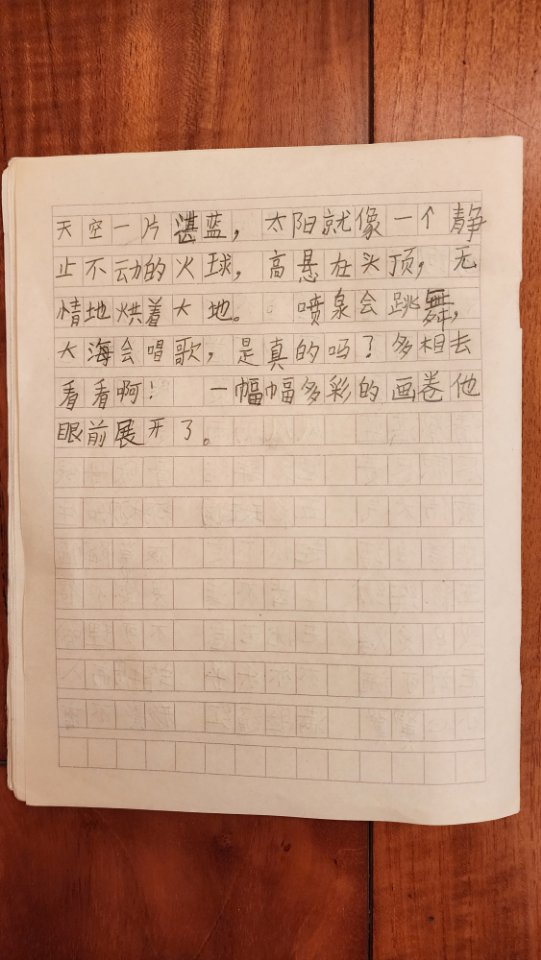 天空一片湛蓝，太阳就像一个静
止不动的火球，高悬在头顶，无
情地烘着大地。 喷泉会跳舞，
大海会唱歌，是真的吗？多相去
看看啊！ 一幅幅多彩的画卷他
眼前展开了。